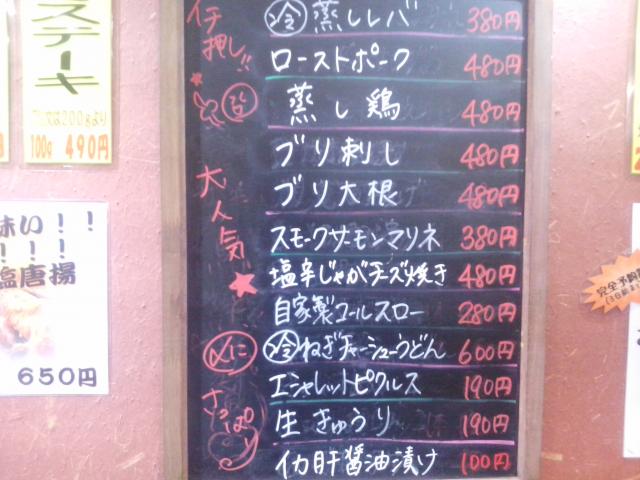 ステーキ
100g 490円
味い!!
!!!
塩唐揚
650円
イチ押し!!
㊷ 蒸しレバ 380円
ローストポーク 480円
蒸し鶏 480円
ブリ刺し 480円
ブリ大根 480円
大人気
スモークサーモンマリネ 380円
塩辛じゃがチーズ焼き 480円
自家製コールスロー 280円
〆に
冷 ねぎチャーシューうどん 600円
エシャレットピクルス 190円
さっぱり
生きゅうり 190円
イカ肝醤油漬け 100円
完全予約